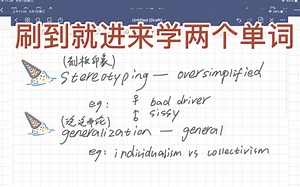 刷到就进来学两个单词
(刻板印象)
stereotyping — oversimplified
eg: ♀ bad driver
♂ sissy
generalization — general
eg: individualism vs collectivism